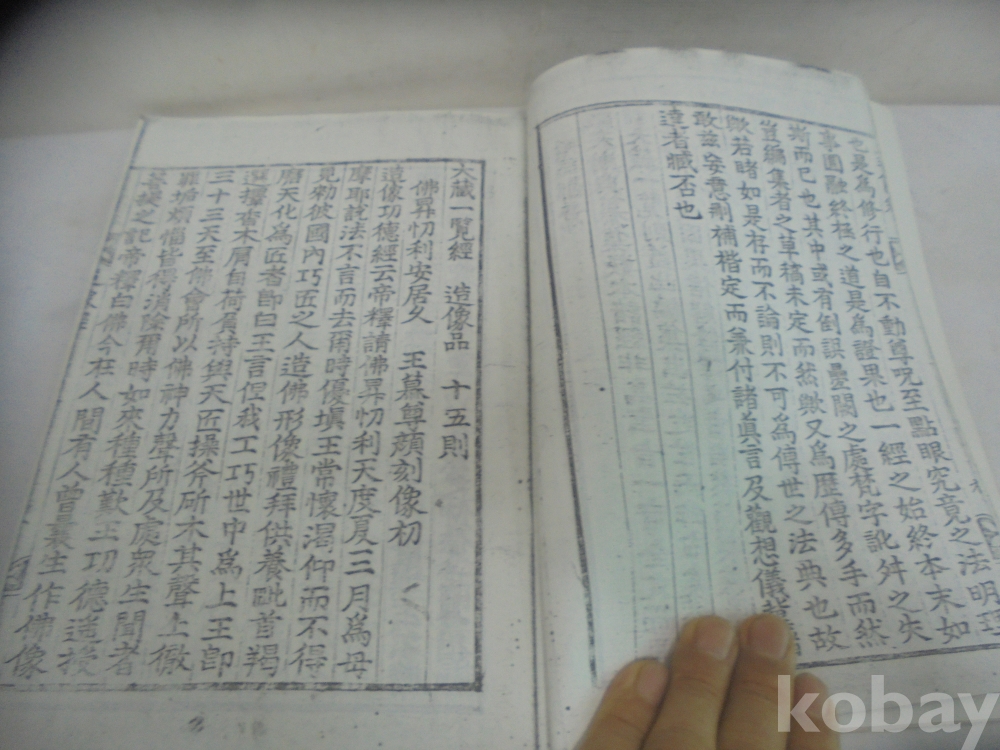 自不動尊呪至點眼究竟之法明理
事圓融終極之道是為證果也一經之始終本末如
也是為修行也
斯而已也其中或有倒誤疊闕之處梵字訛舛之失
豈編集者之草稿未定而然歟又為歷傳多手而然
歟若睹如是存而不論則不可為傳世之法典也故
敢玆妄慧刪補楷定而兼付諸眞言及觀想儀
達者臧否也
大藏一覽經 造像品 十五則
佛昇忉利安居久 王慕尊顔刻像初
造像功德經云帝釋請佛昇忉利天度夏三月為母
摩耶說法不言而去爾時優塡王常懷渴仰而不得
見勑彼國內巧匠之人造佛形像禮拜供養毗首羯
磨天化為匠者卽白王言但我工巧世中為上王卽
選擇香木肩自荷負持與天匠操斧斫木其聲上徹
三十三天至佛會所以佛神力聲所及處衆生聞者
罪垢煩惱皆得消除爾時如來種種歎王功德遙授
菩提之記帝釋白佛今在人間有人曾最主作佛像
kobay